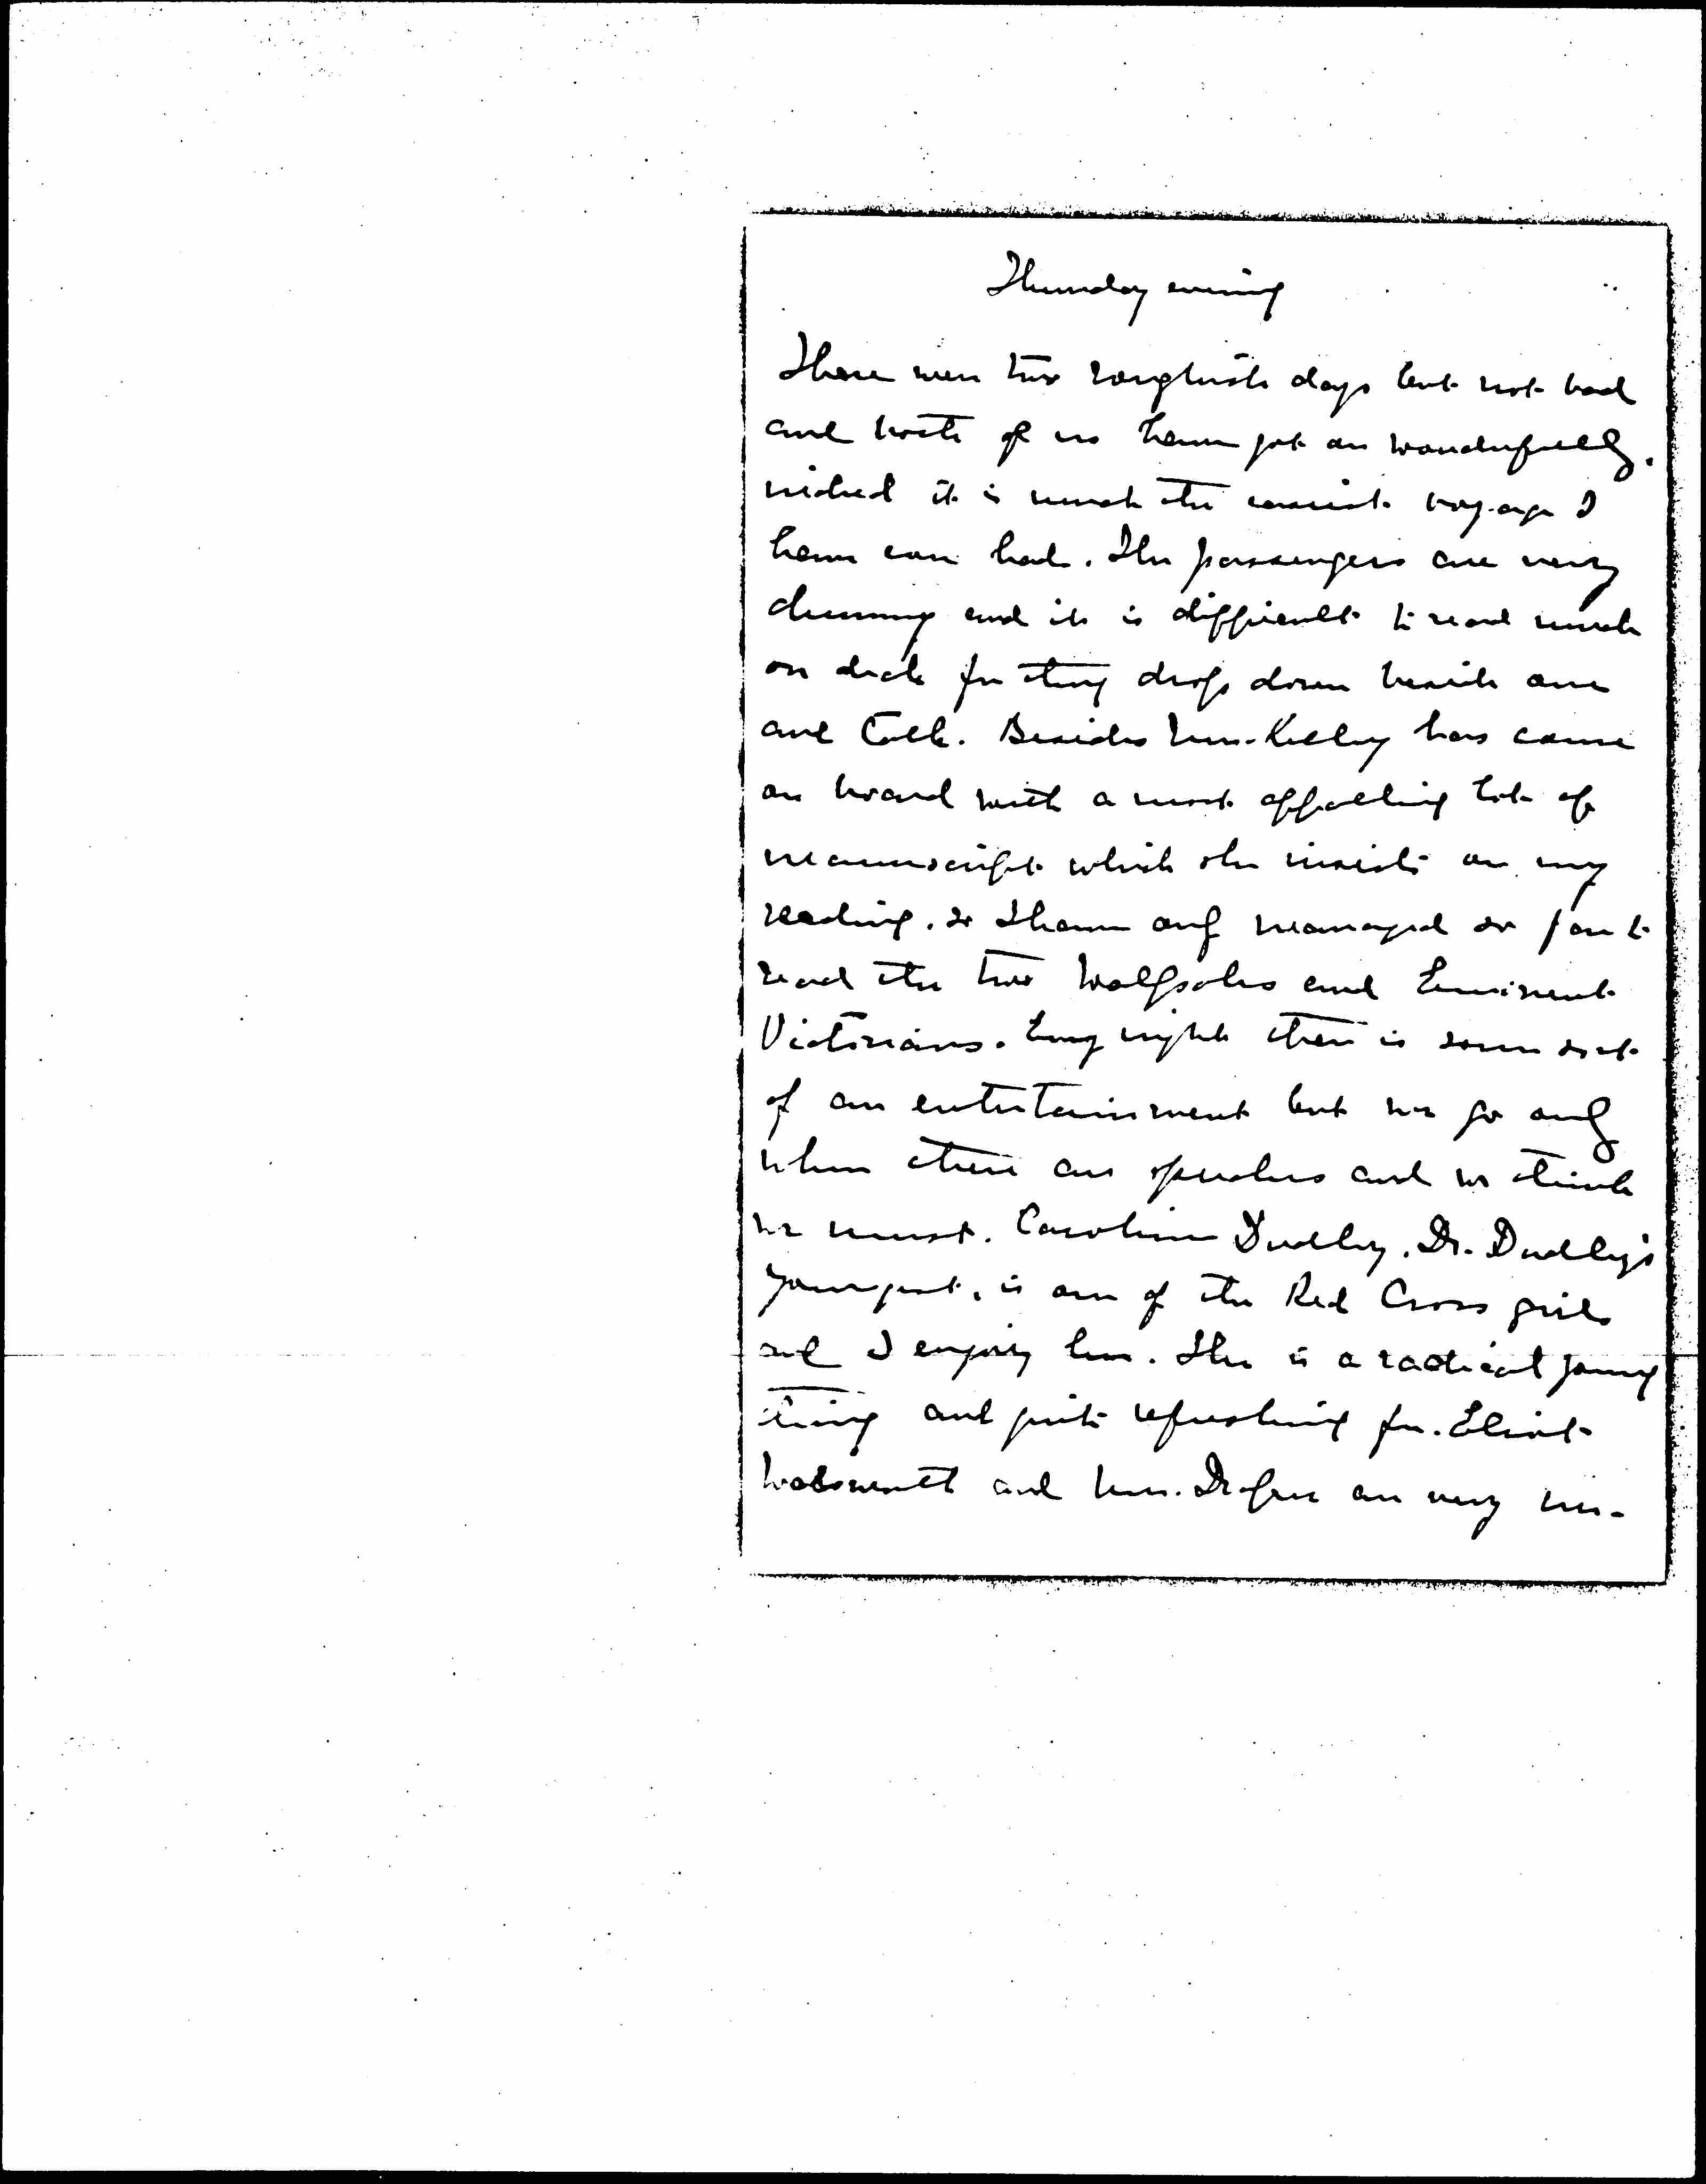 Thursday evening
There were two roughish days but not bad
and both of us have got on wonderfully.
indeed it is much the easiest voyage I
have ever had. The passengers are very
chummy and it is difficult to read much
on deck for they drop down beside one
and talk. Besides Mrs. Kelley has come
on board with a most appalling lot of
manuscript which she insists on my
reading. so I have only managed so far to
read the two Walpoles and Eminent
Victorians. Every night there is some sort
of an entertainment but we go only
when there are speakers and we think
we must. Caroline Dudley, Dr. Dudley's
youngest, is one of the Red Cross girls
and I enjoy her. She is a radical young
thing and quite refreshing for Eliot
Wadsworth and Mrs. Draper are very un-